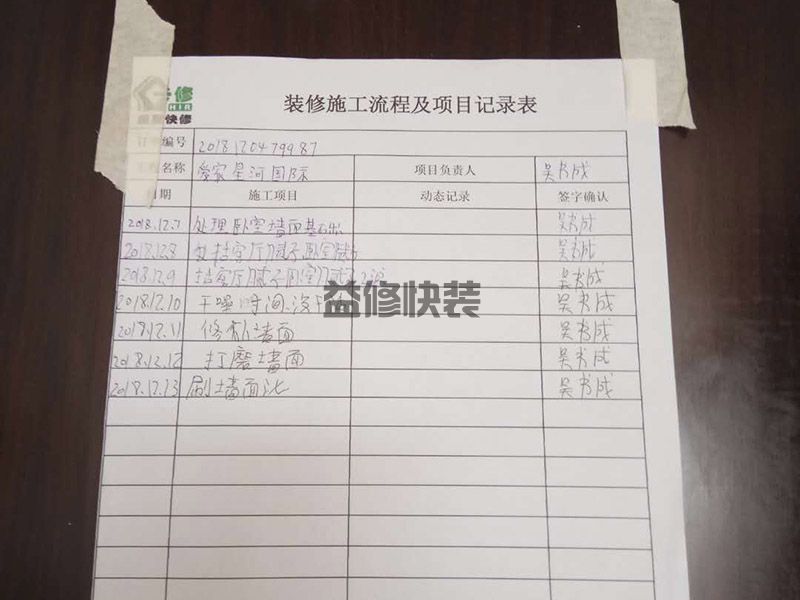 修
快修
装修施工流程及项目记录表
编号 2018120479987
名称 爱家星河国际 项目负责人 吴书成
日期 施工项目 动态记录 签字确认
2018.12.7 处理卧室墙面基础 吴书成
2018.12.8 客厅腻子卧室 吴书成
2018.12.9 客厅腻子卧室 吴书成
2018.12.10 干燥时间 吴书成
益修快装
2018.12.11 修补墙面 吴书成
2018.12.12 打磨墙面 吴书成
2018.12.13 刷墙面 吴书成